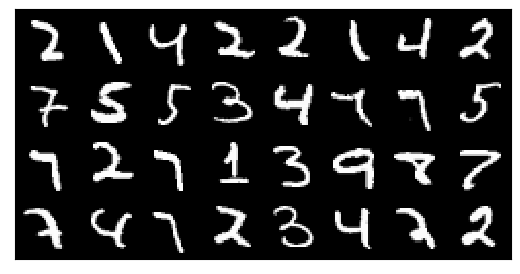 2 1 4 2 2 1 4 2
7 5 5 3 4 7 7 5
7 2 7 1 3 9 8 7
7 4 7 2 3 4 2 2